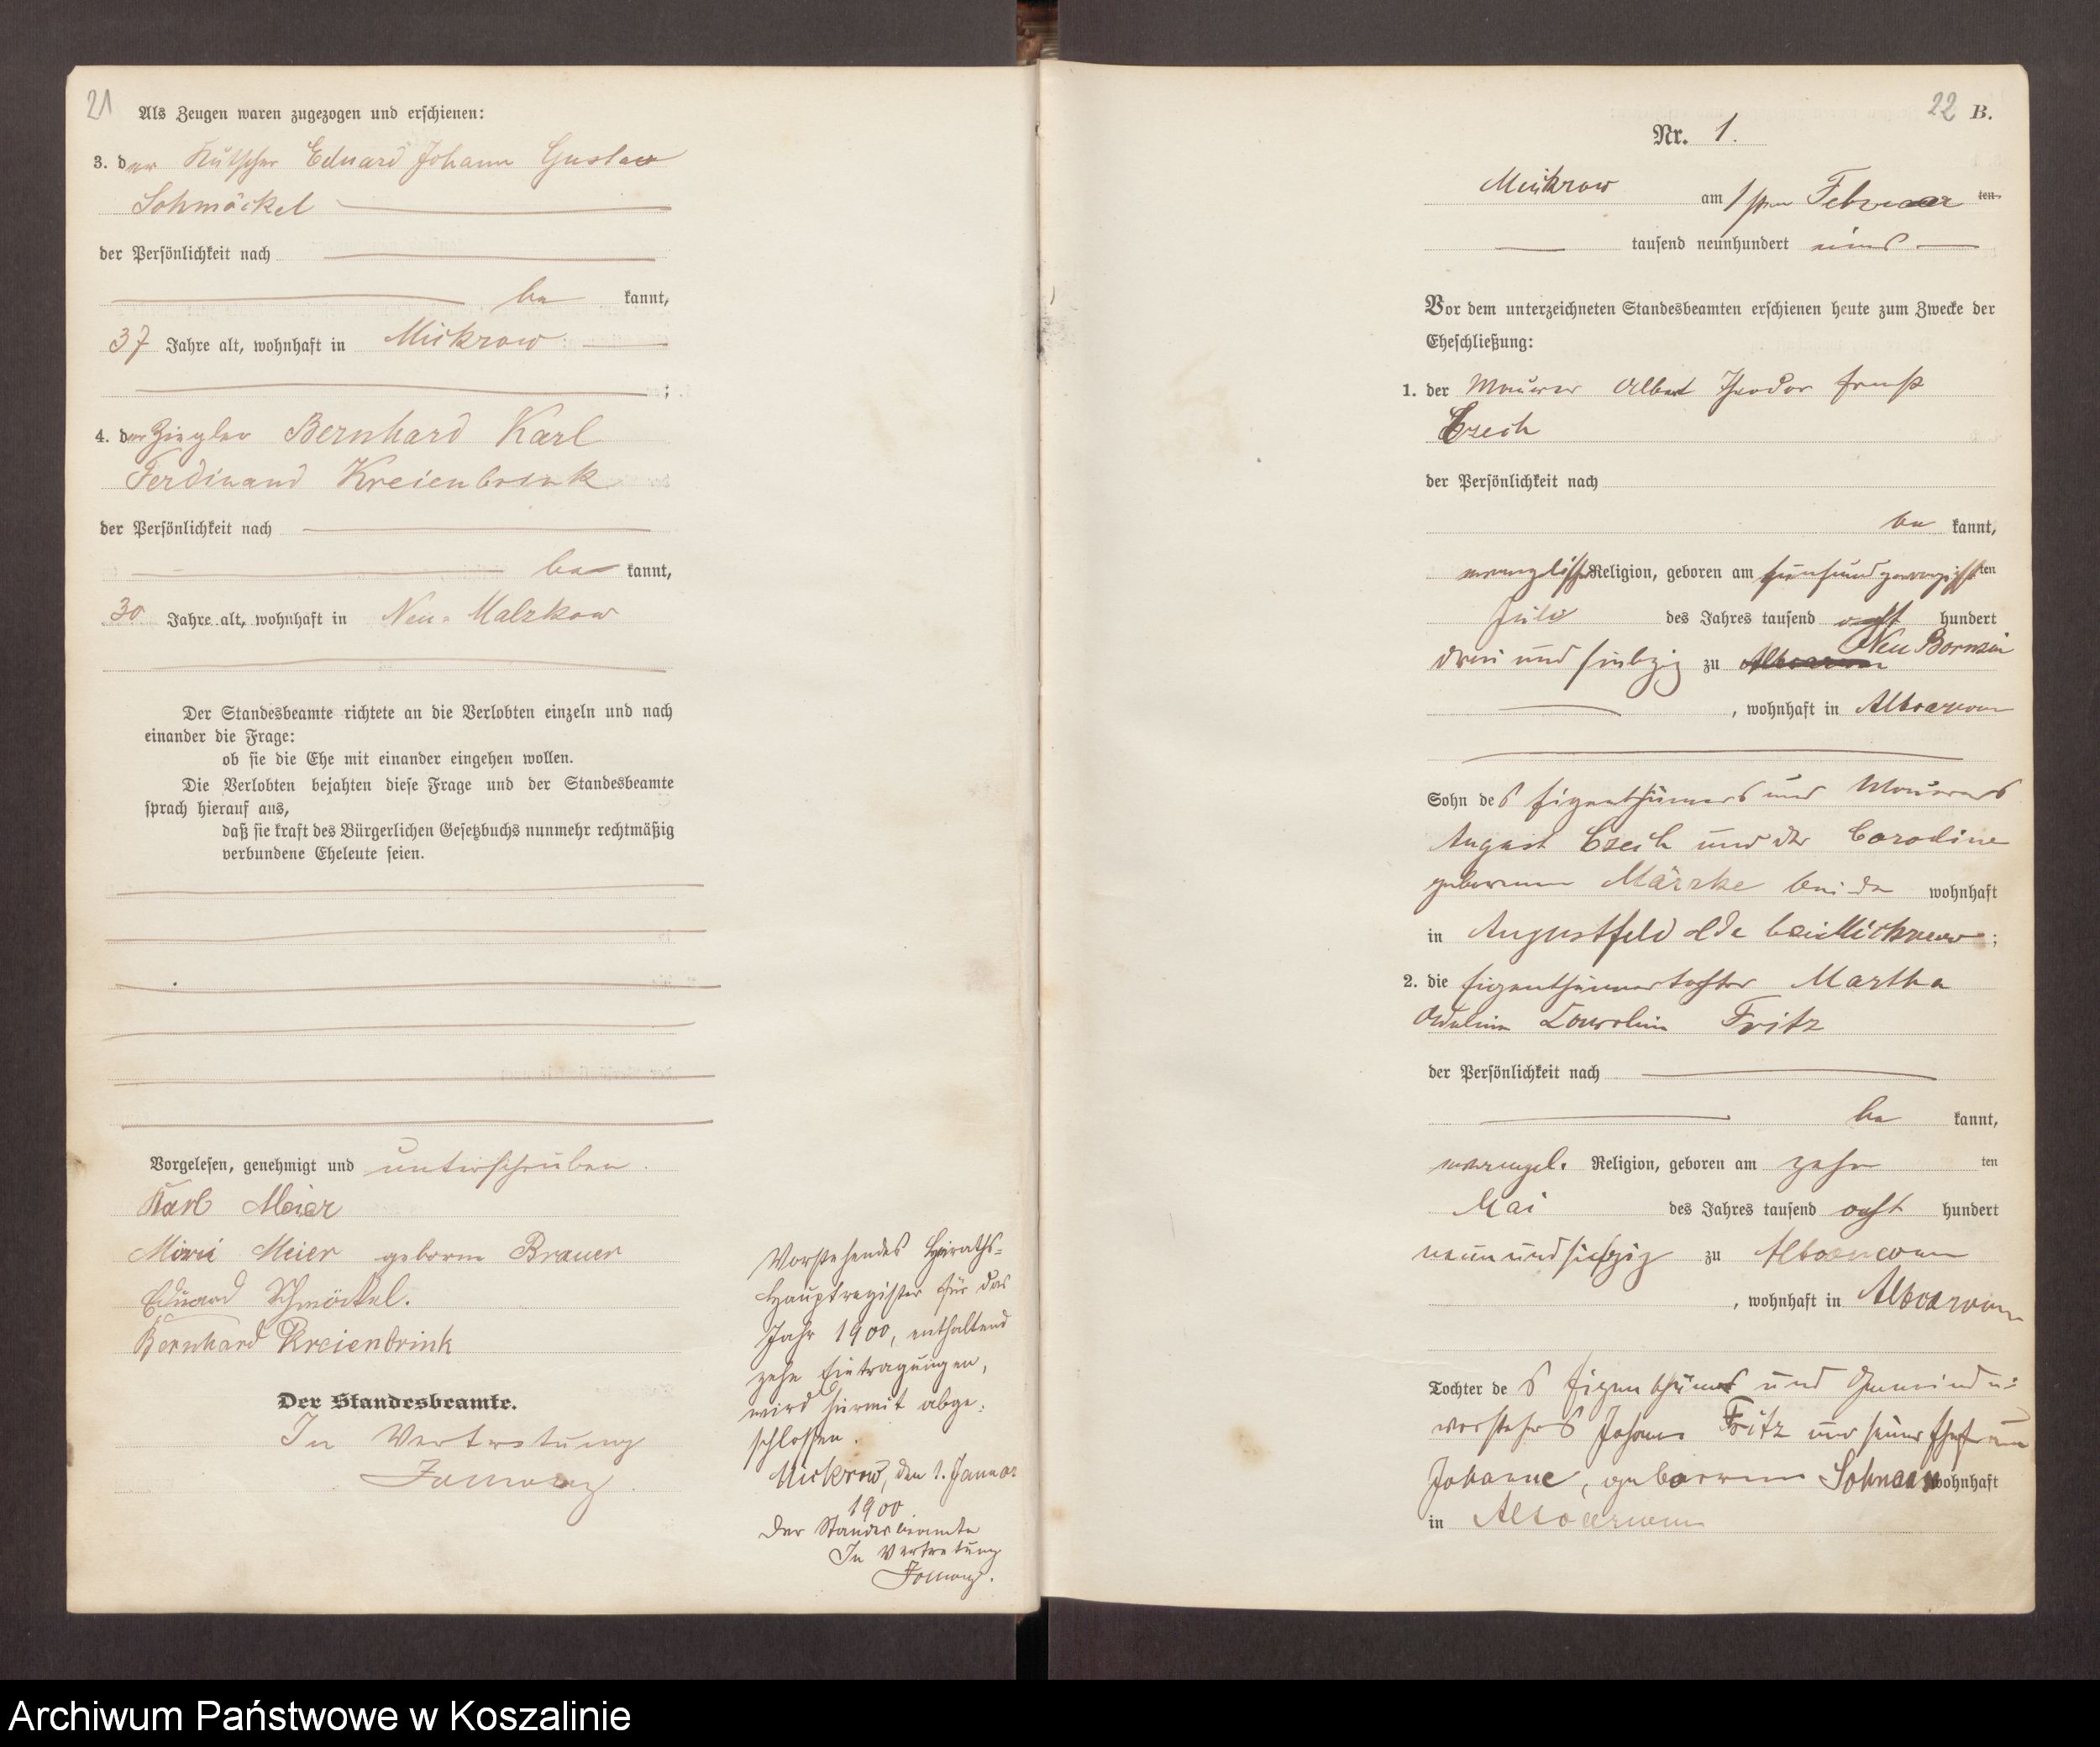 21
Als Zeugen waren zugezogen und erschienen:
3. der Kutscher Eduard Johann Gustav
Schmöckel
der Persönlichkeit nach
be kannt,
37 Jahre alt, wohnhaft in Mickrow
;
4. der Ziegler Bernhard Karl
Ferdinand Kreienbrink
der Persönlichkeit nach
be kannt,
30 Jahre alt, wohnhaft in Neu-Malzkow
Der Standesbeamte richtete an die Verlobten einzeln und nach
einander die Frage:
ob sie die Ehe mit einander eingehen wollen.
Die Verlobten bejahten diese Frage und der Standesbeamte
sprach hierauf aus,
daß sie kraft des Bürgerlichen Gesetzbuchs nunmehr rechtmäßig
verbundene Eheleute seien.
Vorgelesen, genehmigt und unterschrieben.
Karl Meier
Meier geborne Brauer
Eduard Schmöckel.
Bernhard Kreienbrink
Der Standesbeamte.
In Vertretung
Vorstehendes Heiraths-
Hauptregister für das
Jahr 1900, enthaltend
zehn Eintragungen,
wird hiermit abge-
schlossen.
Mickrow, den 1. Januar
1900
Der Standesbeamte
In Vertretung
22 B.
Nr. 1.
Mickrow am 1sten Februar ten
tausend neunhundert eins
Vor dem unterzeichneten Standesbeamten erschienen heute zum Zwecke der
Eheschließung:
1. der Maurer Albert Theodor Ernst
Czech
der Persönlichkeit nach
be kannt,
evangelischer Religion, geboren am fünfundzwanzigsten
Juli des Jahres tausend acht hundert
Neu Bornzin
drei und siebzig zu
, wohnhaft in
Sohn des Eigenthümers und Maurers
August Czech und der Caroline
geborenen beide wohnhaft
in Augustfelde bei Mickrow;
2. die Eigenthümertochter Martha
Fritz
der Persönlichkeit nach
be kannt,
evangel. Religion, geboren am zehn ten
Mai des Jahres tausend acht hundert
neunundsiebzig zu
, wohnhaft in
Tochter des Eigenthümers und Gemeinde-
vorstehers Johann Fritz und seiner Ehefrau
Johanne, geborenen wohnhaft
in
Archiwum Państwowe w Koszalinie